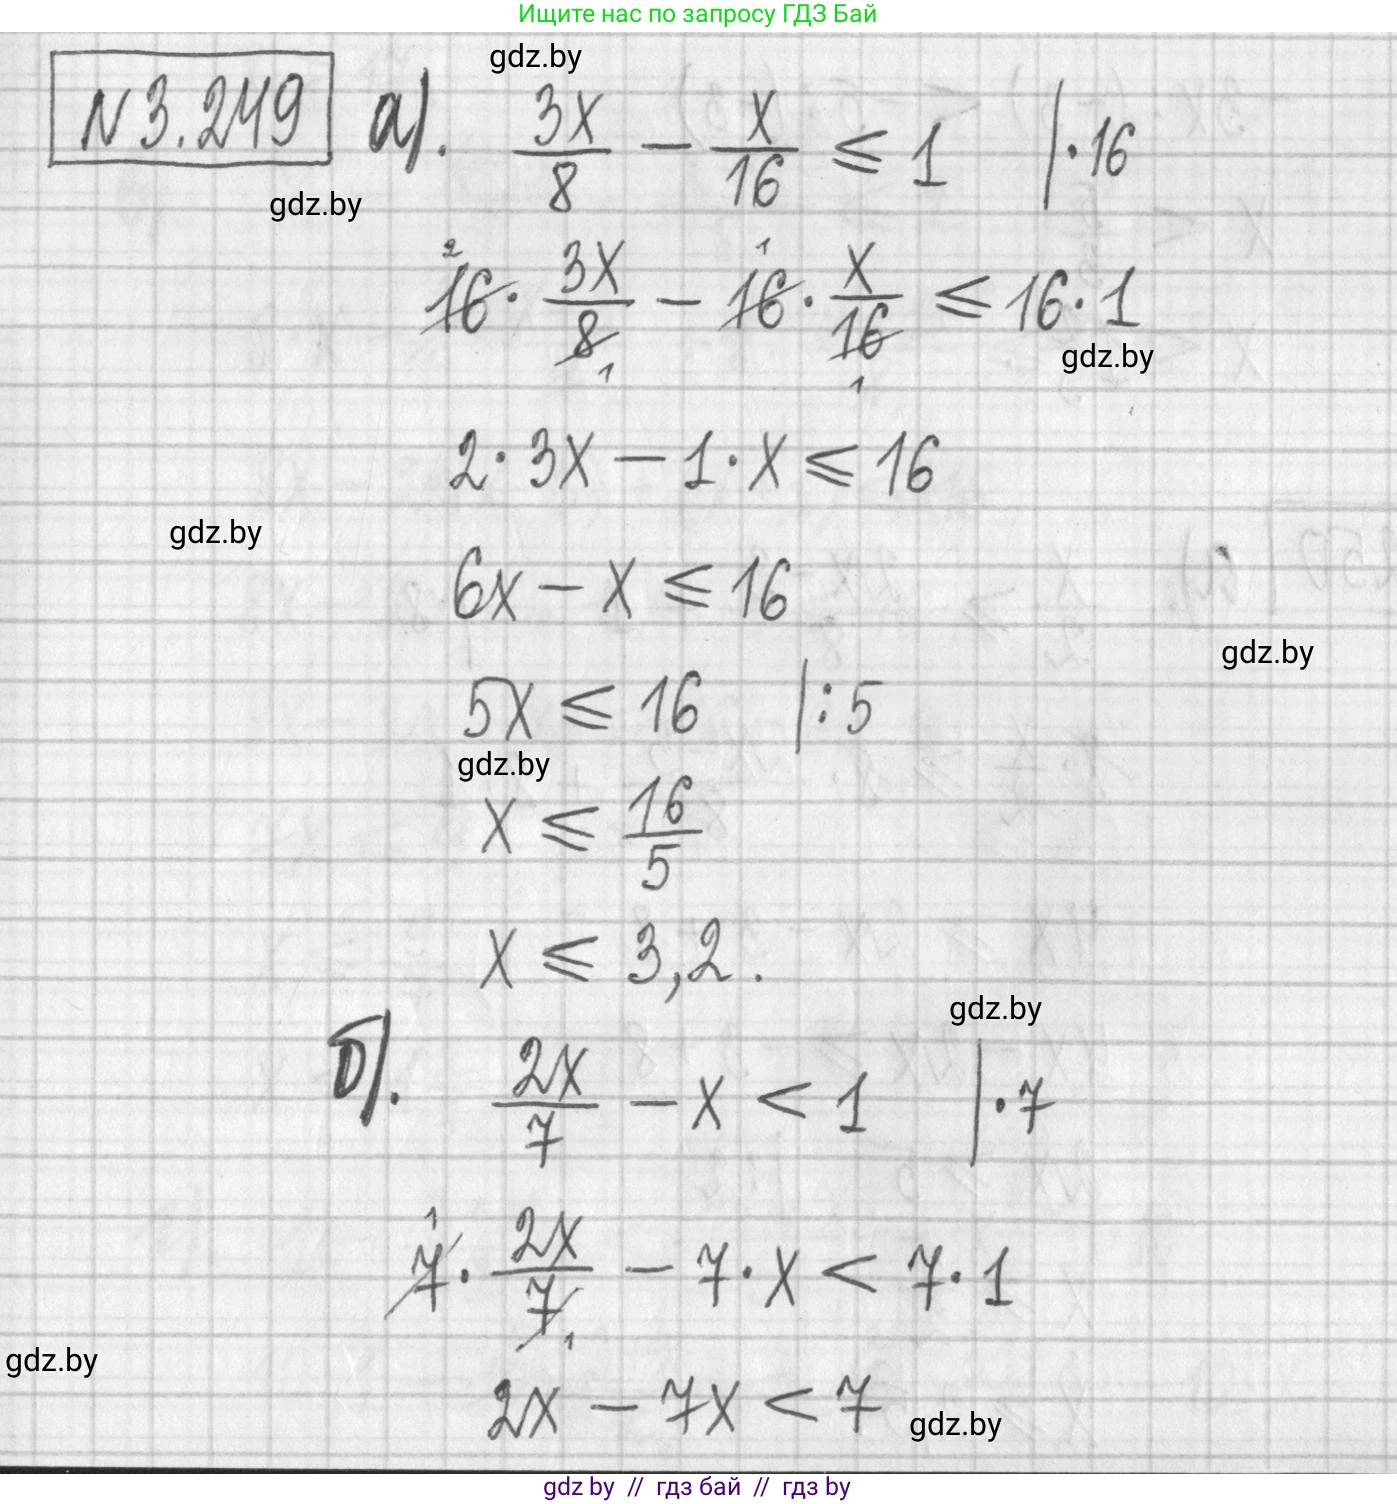 Ищите нас по запросу ГДЗ Бай
gdz.by
N 3.249 а). 3x/8 − x/16 ⩽ 1 | · 16
gdz.by
16² · 3x/8₁ − 16¹ · x/16₁ ⩽ 16 · 1
gdz.by
2 · 3x − 1 · x ⩽ 16
gdz.by
6x − x ⩽ 16
gdz.by
5x ⩽ 16 | : 5
gdz.by
x ⩽ 16/5
x ⩽ 3,2.
gdz.by
б). 2x/7 − x < 1 | · 7
7¹ · 2x/7₁ − 7 · x < 7 · 1
gdz.by
2x − 7x < 7
gdz.by
gdz by // гдз бай // гдз by